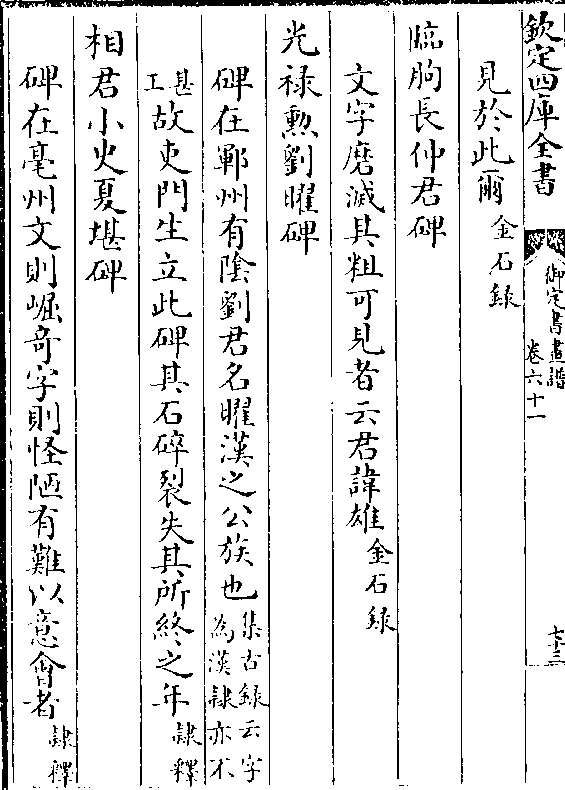 欽定四庫全書
御定書畫譜
卷六十一
七十三
見於此爾金石錄
臨朐長仲君碑
文字磨滅其粗可見者云君諱雄金石錄
光祿勲劉曜碑
碑在鄆州有陰劉君名曜漢之公族也集古錄云字為漢隸亦不
甚工故吏門生立此碑其石碎裂失其所終之年隸釋
相君小史夏堪碑
碑在亳州文則崛奇字則怪陋有難以意會者隸釋